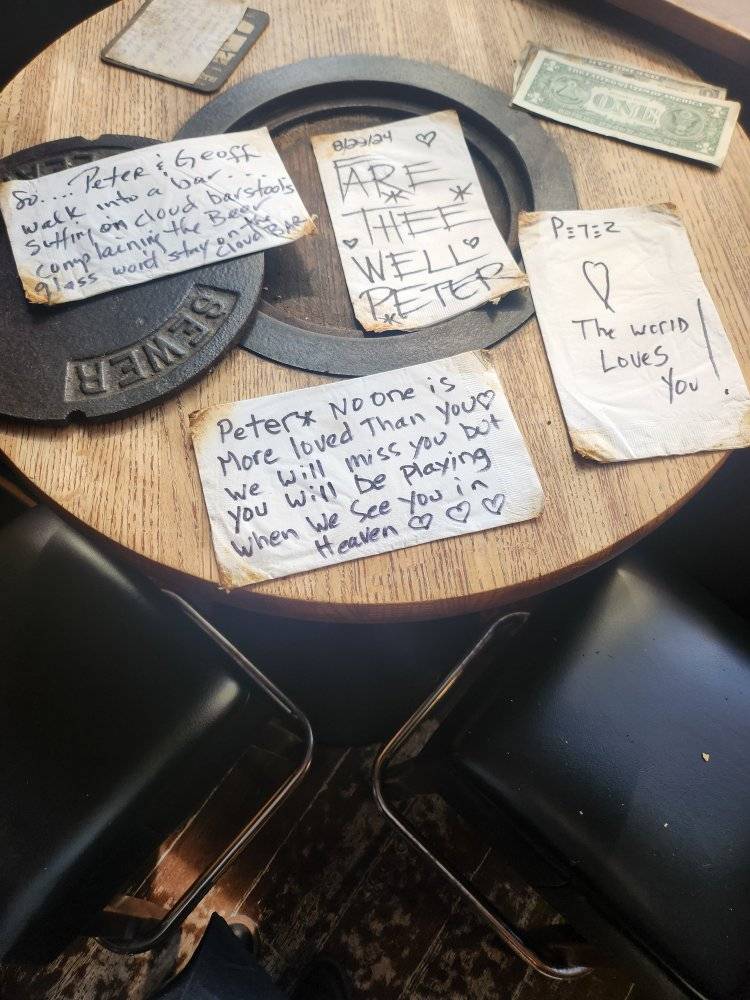 So.... Peter & Geoff
walk into a bar....
sitting on cloud barstools
complaining the Beer
glass wond stay on the
Cloud BAR
8/23/24 ♡
FARE
THEE
WELL
PETER
PETER
♡
The world
Loves
You!
Peter* No one is
More loved Than you♡
we will miss you but
you will be playing
when we see you in
Heaven ♡ ♡ ♡
SEWER
ONE